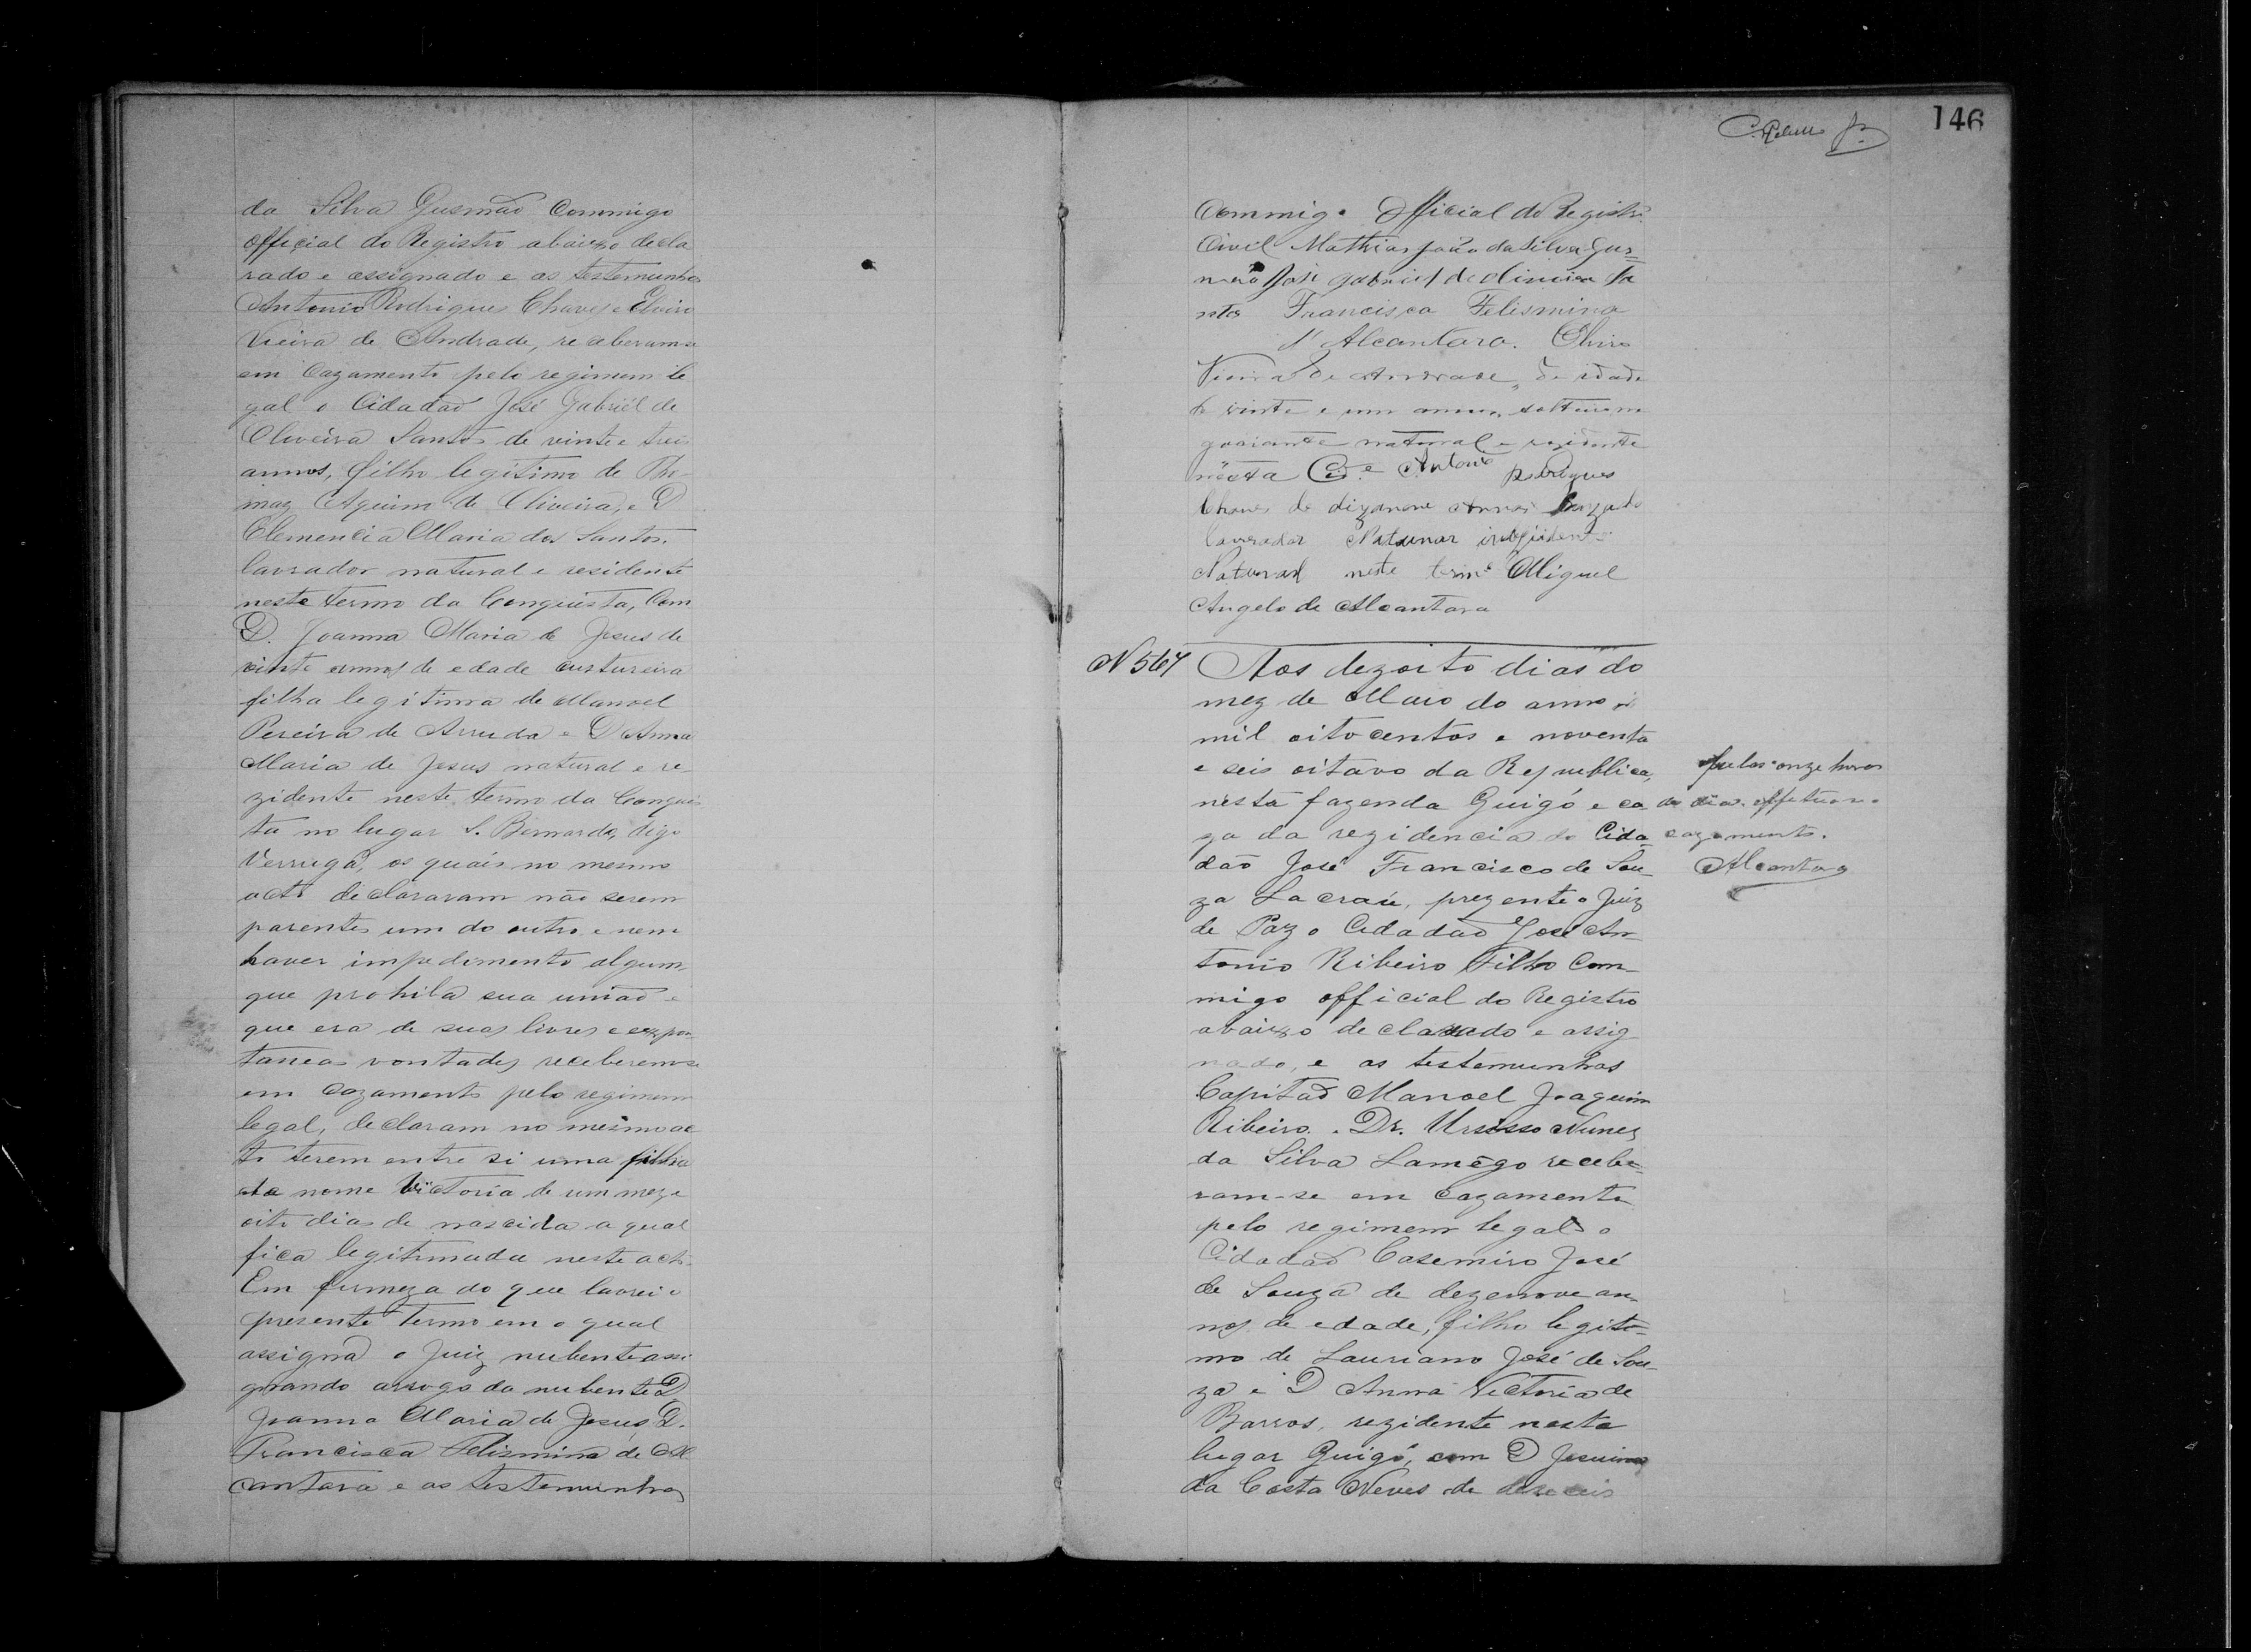 da Silva Gusmão Commigo
official do Registro abaixo decla
rado e assignado e as testemunhas
Antonio Rodrigues Chaves e Elviro
Vieira de Andrade, receberamse
em Cazamento pelo regimem le
gal o Cidadão José Gabriél de
Oliveira Santos de vinte e treis
annos, filho legitimo de Tho-
maz Aquino de Oliveira, e D
Clemencia Maria dos Santos.
lavrador natural e residente
neste termo da Conquista, Com
D. Joanna Maria de Jesus de
vinte annos de edade custureira
filha legitima de Manoel
Pereira de Arruda e D Anna
Maria de Jesus natural e re-
zidente neste termo da Conquis
ta no lugar S. Bernardo, digo
Verruga, os quáis no mesmo
acto declararam não serem
parentes um do outro e nem
haver impedimento algum
que prohila sua união e
que era de suas livres e expon
taneas vontades receberemse
em cazamento pelo regimem
legal, declaram no mesmo ac
to terem entre si uma filha
de nome Victoria de um mez e
oito dias de nascida a qual
fica legitimada neste acto.
Em firmeza do que lavrei o
presente termo em o qual
assigna o Juiz nubente assi
gnando arrogo da nubente D.
Joanna Maria de Jesus D.
Francisca Felismina de Al
cantara e as testemunhas
146
Commigo Official do Registro
Civil Mathias João da Silva Gus=
mão José Gabriel de Oliveira Sa
ntos Francisca Felismina
d'Alcantara. Elviro
Vieira de Andrade, de idade
de vinte e um annos, solteiro n
gociante natural e rezidente
nesta Cid.e Antonio Rodrigues
Chaves de dizanove annos Cazado
lavrador
Natural neste termo Miguel
Angelo de Alcantara
N 567 Aos dezoito dias do
mez de Maio do anno de
mil oito centos e noventa
e seis oitavo da Republica,
pelas onze horas
nesta fazenda Guigó e ca
do dia effetuar o
za da rezidencia do Cida
cazamento.
dão José Francisco de Sou-
Alcantara
za Lacraú, prezente o Juiz
de Paz o Cidadão José An-
tonio Ribeiro Filho Com-
migo official do Registro
abaixo declarado e assig-
nado, e as testemunhas
Capitão Manoel Joaquim
Ribeiro. Dr. Ursisso Nunes
da Silva Lamêgo recebe-
ram-se em cazamento
pelo regimem legal o
Cidadão Casemiro José
de Souza de dezenove an-
nos de edade, filho legiti-
mo de Lauriano José de Sou-
za e D Anna Victoria de
Barros, rezidente neste
lugar Guigó, com D Jesuina
da Costa Neves de deseseis